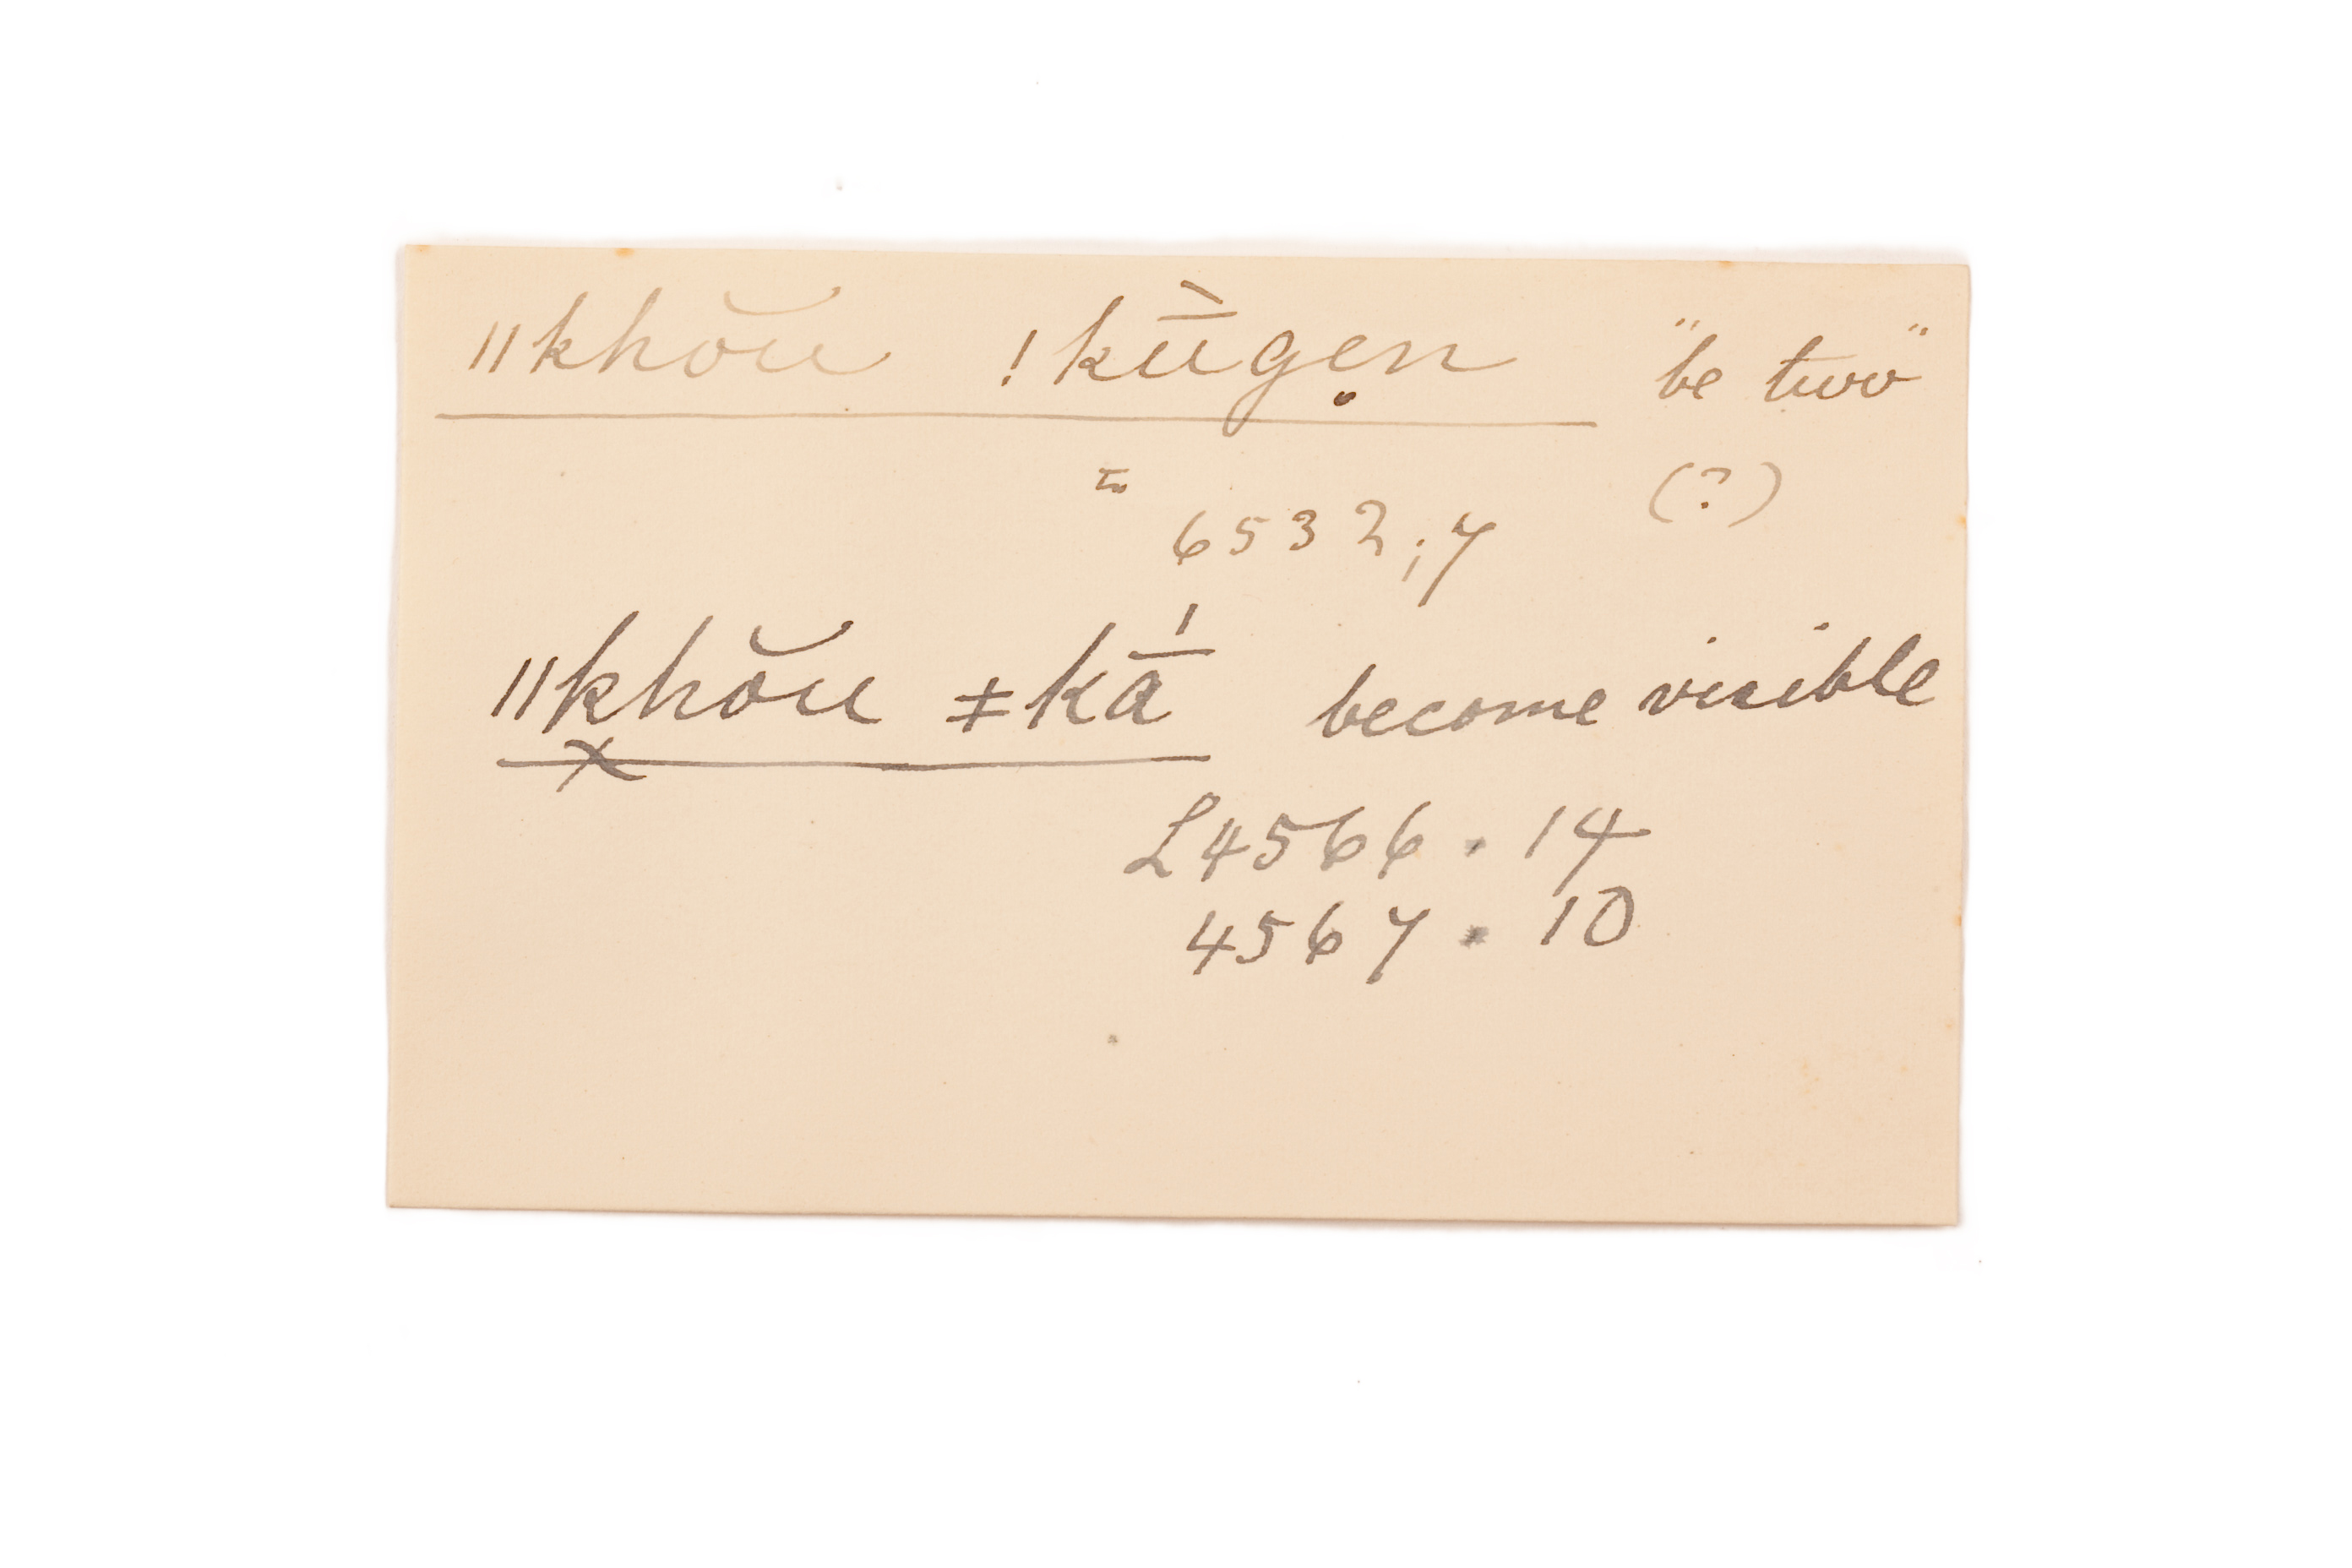 ǁkhŏu ǃkū̀gẹn "be two"
(?)
6532;7
ǁkhŏu ǂkā́ become visible
x
L4566.14
4567.10